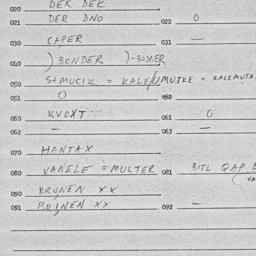 020 DER DEK
021 DER DNO 022 O
030 CAPER 031 —
040 ) BONDER )-BONDER
050 STMUCIK = KALE/MUTKE = KALEMUTA
051 O 052
060 KVOXT 061 O
062 — 063 —
070 HANTAX
080 VANELE = MULTER 081 BITL QAP
090 BRUNEN XX
091 BRUNEN XX 092 —